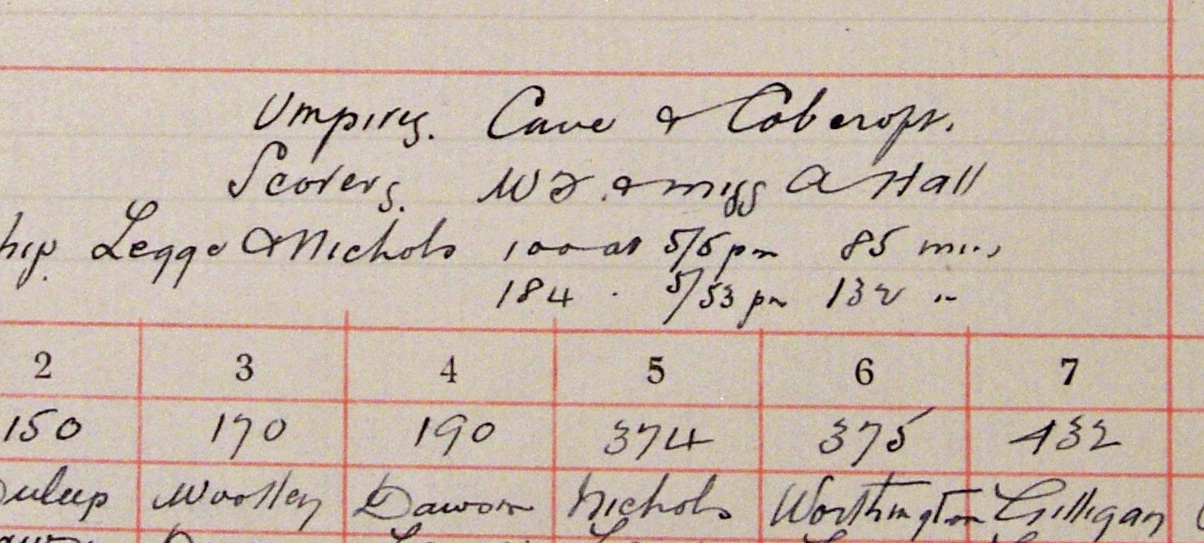 Umpires. Cave & Cobcroft.
Scorers. & Miss A Hall
hip. Legge & Nichols 100 at 5/6 pm 85 mins
184 . 5/53 pm 132 "
2 3 4 5 6 7
150 170 190 374 375 432
Duleep Woolley Dawson Nichols Worthington Gilligan